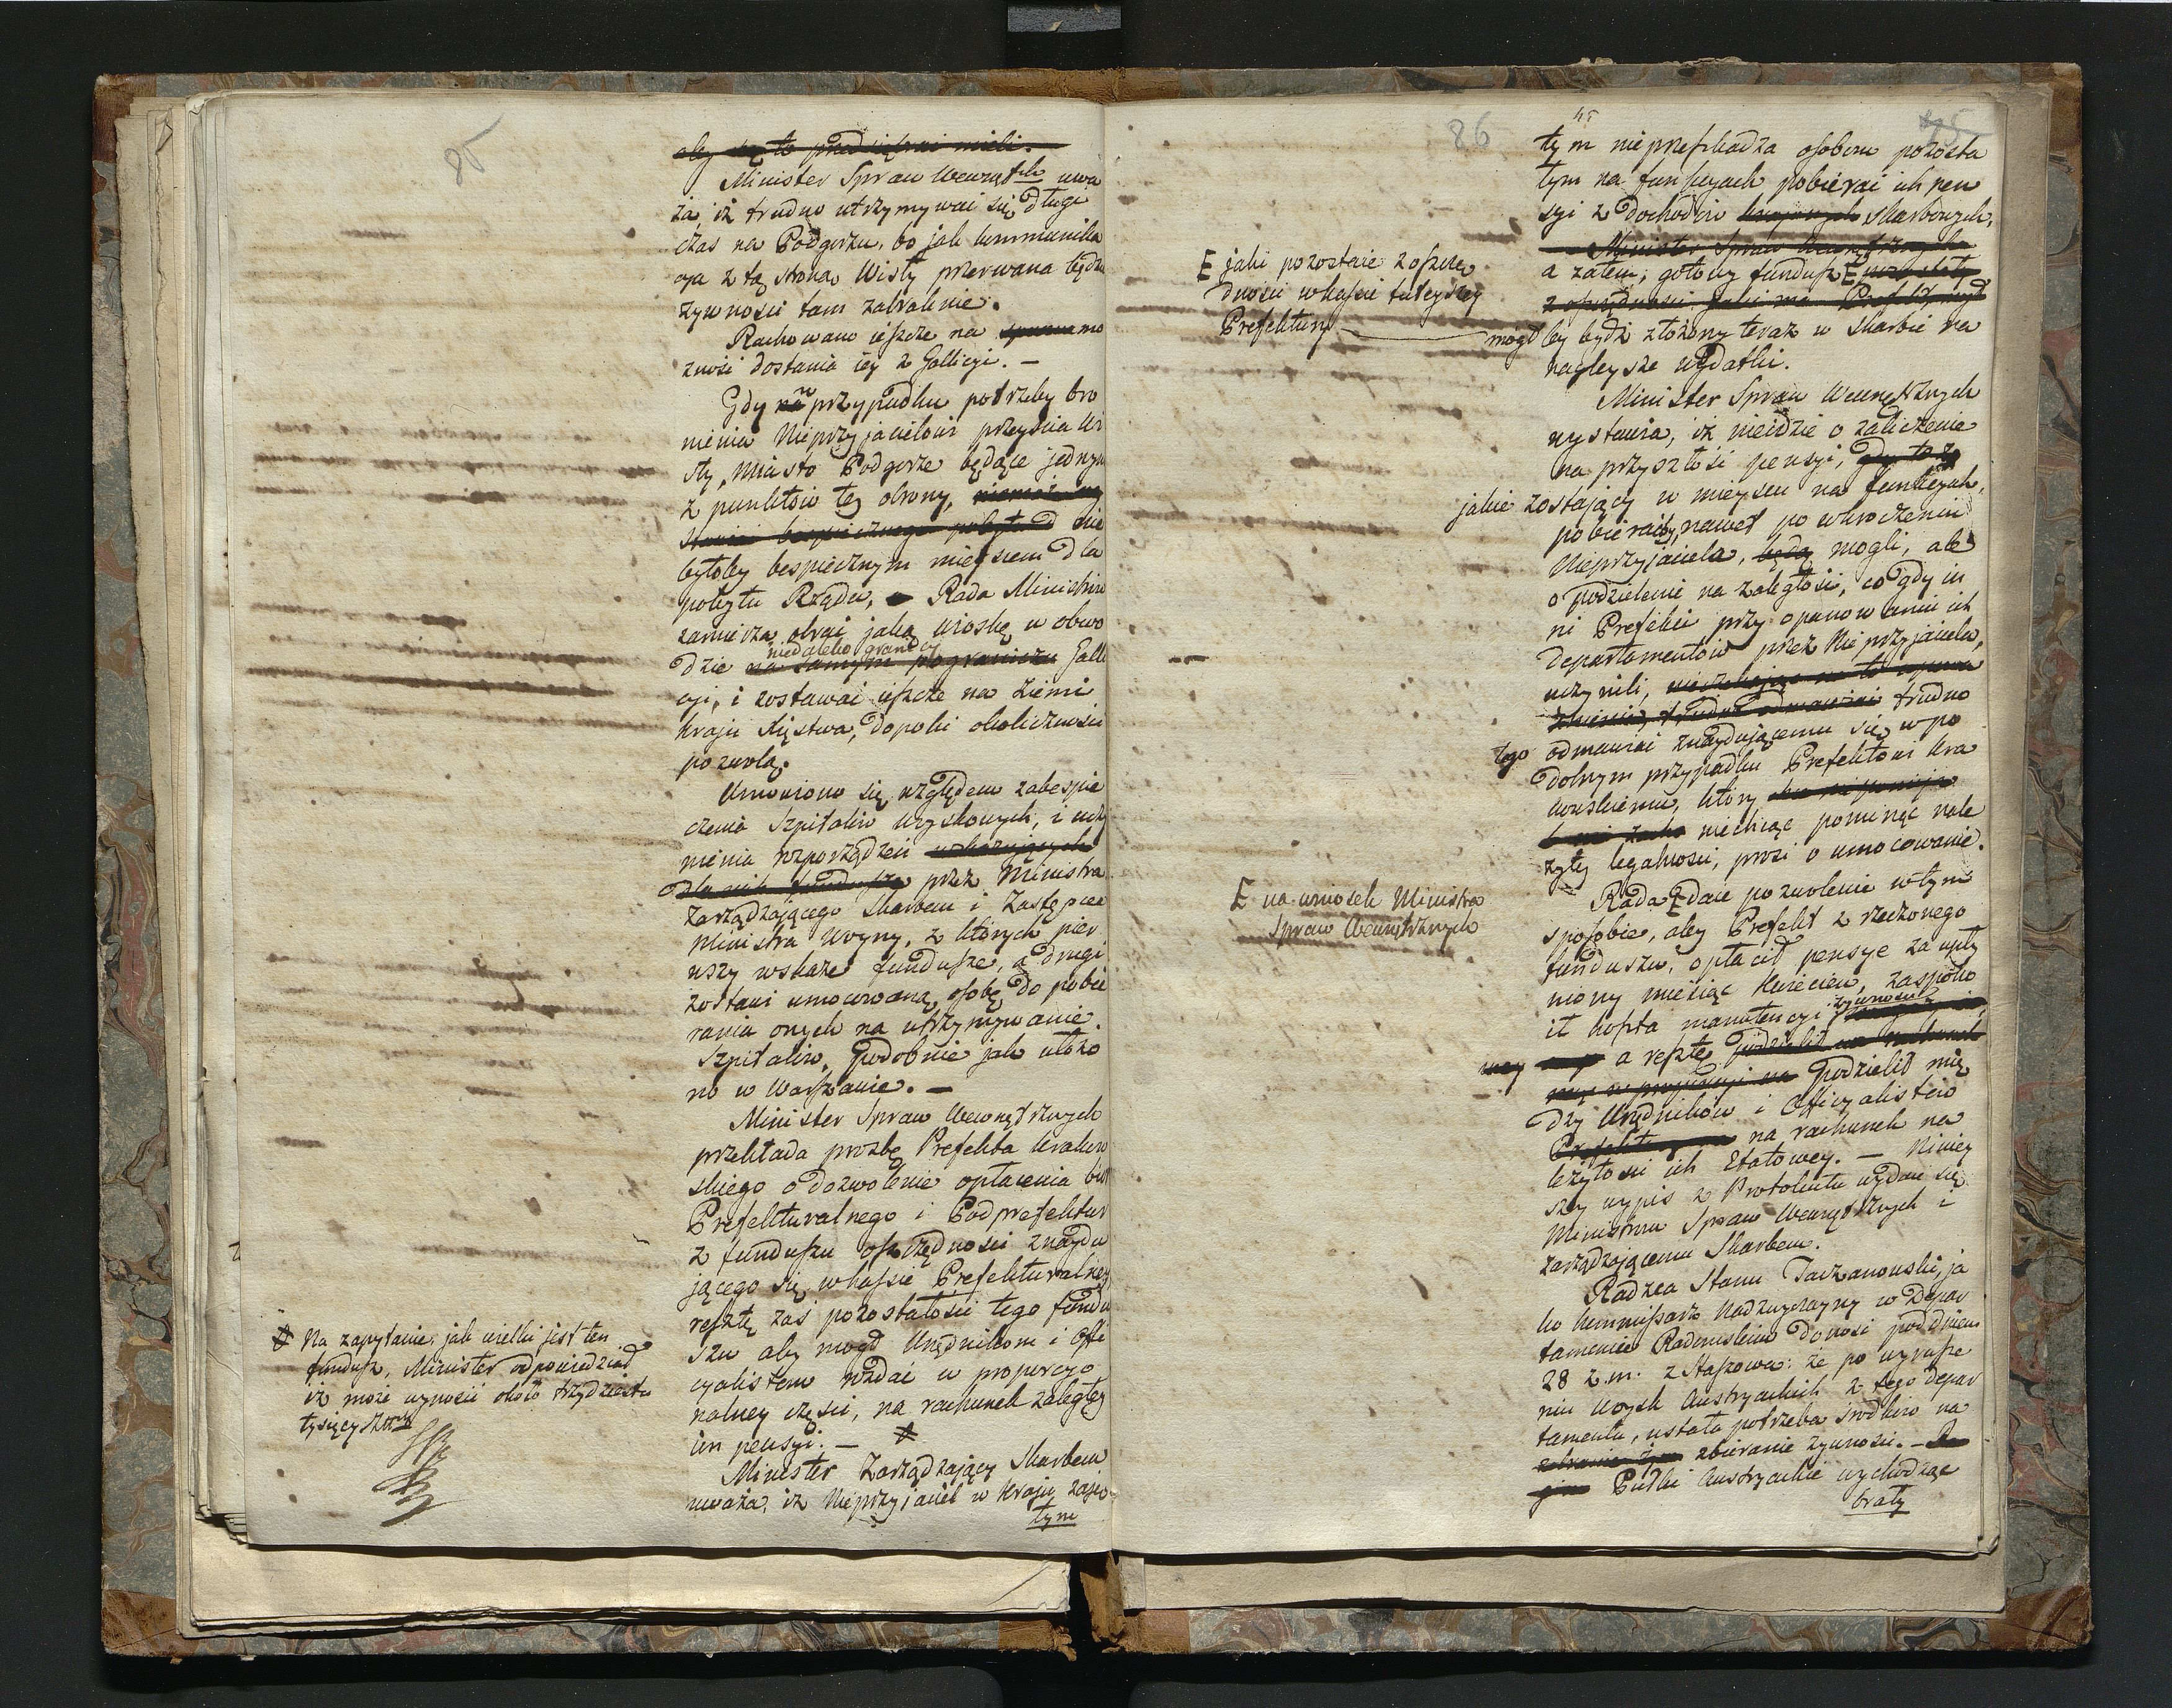 85
Minister Spraw Wewnętch uwa
ża iż trudno utrzymywać się długi
czas na Podgorzu, bo jak kommunika
cya z tą stroną Wisły przerwana będzie
żywności tam zabraknie.
Rachowano ieszcze na mo
żność dostania iey z Gallicyi. —
Gdy w przypadku potrzeby bro
nienia Nieprzyjacielowi przeyścia Wi
sły, Miasto Podgorze będące jednym
z punktów tey obrony, nie
byłoby bespiecznym mieyscem dla
pobytu Rządu, Rada Ministrów
zamierza obrać jaką wioskę w obwo
niedaleko granicy
dzie na samym pograniczu Galli
cyi, i zostawać ieszcze na ziemi
kraju Xięstwa, dopoki okoliczności
pozwolą.
Umowiono się względem zabespie
czenia Szpitalów Woyskowych, i uczy
nienia rozporządzeń wskazujących
dla nich fundusze przez Ministra
Zarządzającego Skarbem i Zastępcę
Ministra Woyny, z których pier
wszy wskaże fundusze, a drugi
zostawi umocowaną osobę do pobie
rania onych na utrzymywanie
Szpitalów, podobnie jak ułożo
no w Warszawie. —
Minister Spraw Wewnętrznych
przekłada prośbę Prefekta Krakow
skiego o dozwolenie opłacenia biór
Prefekturalnego i Podprefektur
z funduszu oszczędności znaydu
jącego się w kassie Prefekturalney
resztę zaś pozostałości tego fundu
szu aby mogł Urzędnikom i Offi
cyalistom rozdać w proporcyo
nalney części, na rachunek zaległey
im pensyi. —
Minister Zarządzający Skarbem
uważa, iż Nieprzyjaciel w Kraju zaję
tym
Na zapytanie: jak wielki jest ten
fundusz, Minister odpowiedział
iż może wynosić około trzydziestu
tysięcy Złotch
86
45
tym nieprzeszkadza osobom pozosta
łym na funkcyach pobierać ich pen
syi z dochodów krajowych skarbowych,
Minister Spraw Wewnętrznych
a zatem, gotowy fundusz pozostały
z oszczędności jaki ma Prefekt, mogł
by bydź złożony teraz w skarbie na
nagleysze wydatki.
jaki pozostaie z oszczę
dności w kassie tuteyszey
Prefektury
Minister Spraw Wewnętrznych
wystawia, iż nieidzie o zaliczenie
na przyszłość pensyi,
jakie zostający w mieyscu na funkcyach,
pobieraćby, nawet po wkroczeniu
Nieprzyjaciela, będą mogli, ale
o podzielenie na zaległości, co gdy in
ni Prefekci przy opanowaniu ich
departamentów przez Nieprzyjaciela,
uczynili, trudno
tego odmawiać znaydującemu się w po
dobnym przypadku Prefektowi Kra
kowskiemu, który
niechcąc pominąć nale
żytey legalności, prosi o umocowanie.
Rada daie pozwolenie w tym
na wniosek Ministra
Spraw Wewnętrznych
sposobie, aby Prefekt z rzeczonego
funduszu, opłacił pensye za upły
niony miesiąc Kwiecień, zaspoko
ił koszta manutencyi żywności
a resztę podzielił na rachunek
podzielił mię
dzy Urzędników i Officyalistów
Prefekt na rachunek na
leżytości ich Etatowey. — Niniey
szy wypis z Protokułu wydan się
Ministrom Spraw Wewnętrznych i
zarządzającemu Skarbem.
Radzca Stanu Taczanowski, ja
ko Kommissarz Nadzwyczayny w Depar
tamencie Radomskim donosi pod dniem
28 z. m. z Staszowa: że po wyrusze
niu Woysk Austryackich z tego depar
tamentu, ustała potrzeba środków na
zebranie zbieranie żywności. —
Pułki Austryackie wychodząc
brały